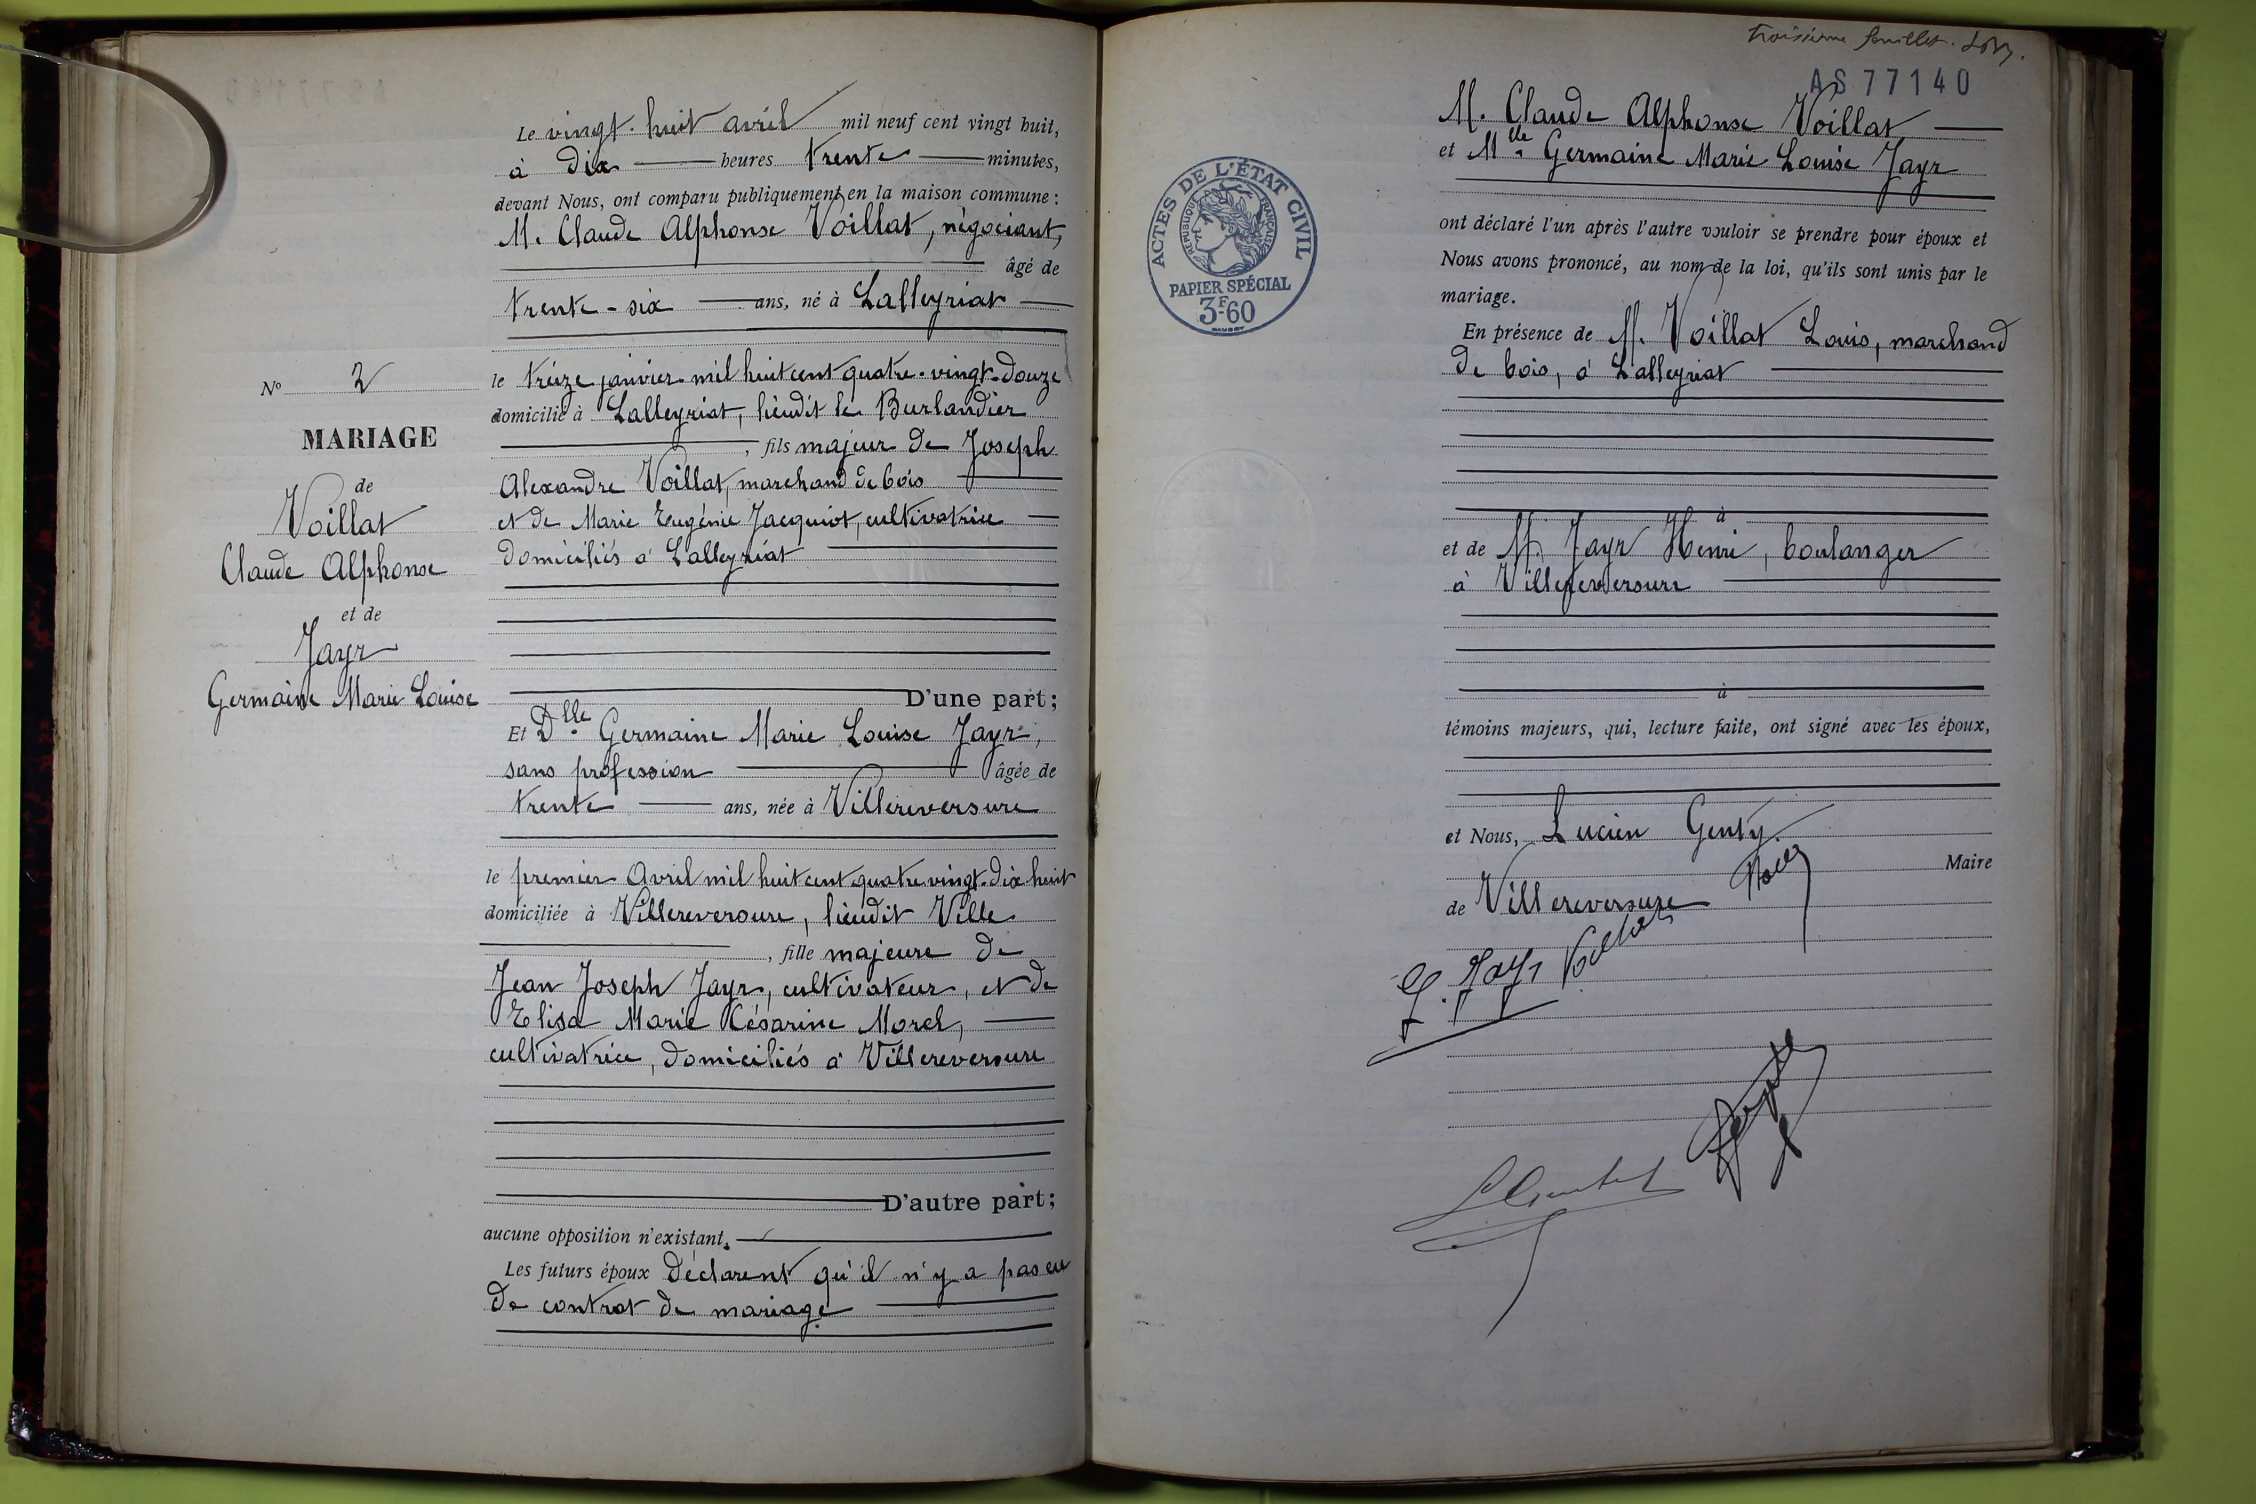 Le vingt-huit avril mil neuf cent vingt huit,
à dix heures trente minutes,
devant Nous, ont comparu publiquement en la maison commune :
M. Claude Alphonse Voillat, négociant,
âgé de
trente-six ans, né à Lalleyriat
le treize janvier mil huit cent quatre-vingt-douze
domicilié à Lalleyriat, lieudit le Burlandier
, fils majeur de Joseph
Alexandre Voillat, marchand de bois
et de Marie Eugénie Jacquiot, cultivatrice
domiciliés à Lalleyriat
D'une part;
Nº 2
MARIAGE
de
Voillat
Claude Alphonse
et de
Jayr
Germaine Marie Louise
Et Dlle Germaine Marie Louise Jayr,
sans profession âgée de
trente ans, née à Villereversure
le premier Avril mil huit cent quatre vingt-dix huit
domiciliée à Villereversure, lieudit Ville
, fille majeure de
Jean Joseph Jayr, cultivateur, et de
Elisa Marie Césarine Morel,
cultivatrice, domiciliés à Villereversure
D'autre part;
aucune opposition n'existant.
Les futurs époux déclarent qu'il n'y a pas eu
de contrat de mariage
Troisième feuillet.
AS 77140
ACTES DE L'ÉTAT CIVIL
RÉPUBLIQUE FRANÇAISE
PAPIER SPÉCIAL
3F-60
M. Claude Alphonse Voillat
et Mlle Germaine Marie Louise Jayr
ont déclaré l'un après l'autre vouloir se prendre pour époux et
Nous avons prononcé, au nom de la loi, qu'ils sont unis par le
mariage.
En présence de M. Voillat Louis, marchand
de bois, à Lalleyriat
à
et de M. Jayr Henri, boulanger
à Villereversure
à
témoins majeurs, qui, lecture faite, ont signé avec les époux,
et Nous, Lucien Genty.
Maire
de Villereversure
G. Jayr Voillat